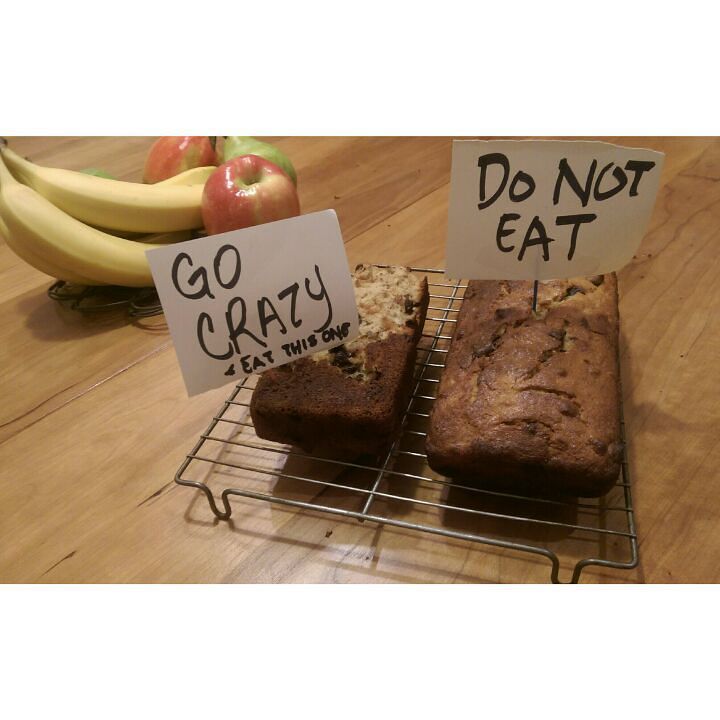 GO
CRAZY
& EAT THIS ONE
DO NOT
EAT